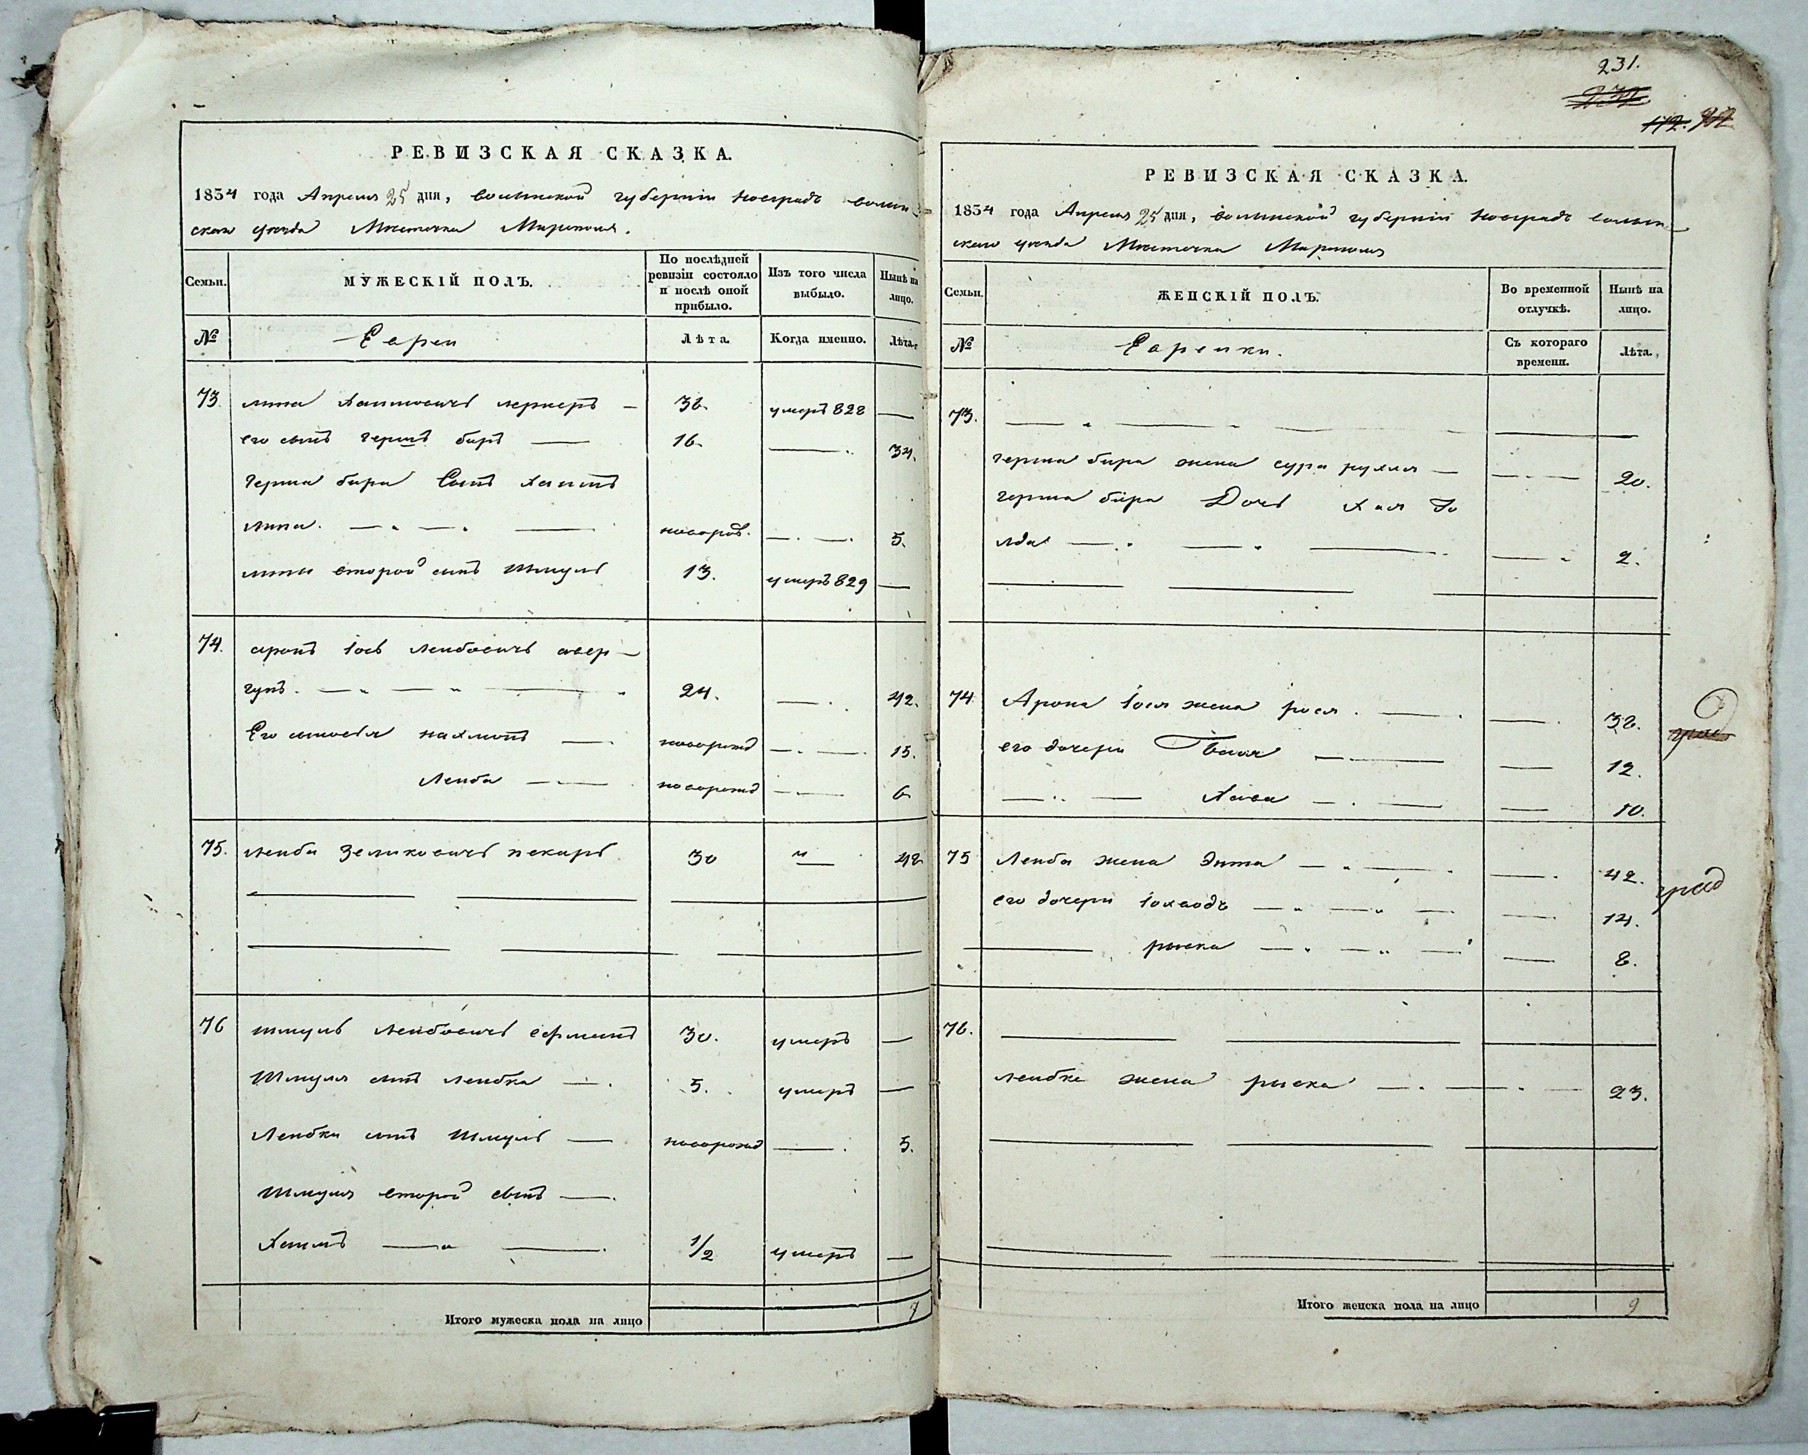 РЕВИЗСКАЯ СКАЗКА.
1834 года Апреля 25 дня, волынской губернии Новградъ волын
скаго уезда Местечка Мирополя.
Семьи.
МУЖЕСКІЙ ПОЛЪ.
По послѣдней ревизіи состояло и послѣ оной прибыло.
Изъ того числа выбыло.
Нынѣ на лицо.
№
Евреи
Лѣта.
Когда именно.
Лѣта.
73. липа Хаимовичъ лернеръ — 36. умеръ 828 —
его сынъ гершъ беръ — 16. — 34.
герша бера Сынъ Хаимъ
липа. — новорож. — 5.
липы второй сынъ Шмуль 13. умеръ 829 —
74. аронъ Iось Лейбовичъ авер—
гунъ. — 24. — 42.
Его сыновья нахманъ — новорожд — 15.
Лейба — новорожд — 6
75. Лейба Зеликовичъ пекарь 30 — 48
76 шмуль Лейбовичъ 30. умеръ —
Шмуля сынъ Лейбка — 5. умеръ —
Лейбки сынъ Шмуль — новорожд — 5.
Шмуля второй сынъ —
Хаимъ — 1/2 умеръ —
Итого мужеска пола на лицо 7
231.
232.
172.
РЕВИЗСКАЯ СКАЗКА.
1834 года Апреля 25 дня, волынской губернии Новградъ волын
скаго уезда Местечка Мирополя
Семьи.
ЖЕНСКІЙ ПОЛЪ.
Во временной отлучкѣ.
Нынѣ на лицо.
№
Еврейки.
Съ котораго времени.
Лѣта.
73.
герша бера жена сура рухля — 20.
герша бера Дочь Хая Го
лда — 2.
74 Арона Iося жена рося. — 38.
его дочери Бася — 12.
— Хава — 10.
75 Лейбы жена Энта — 42.
его дочери Iохводъ — 14.
— рыска — 8.
76.
лейбки жена рыска — 23.
Итого женска пола на лицо 9